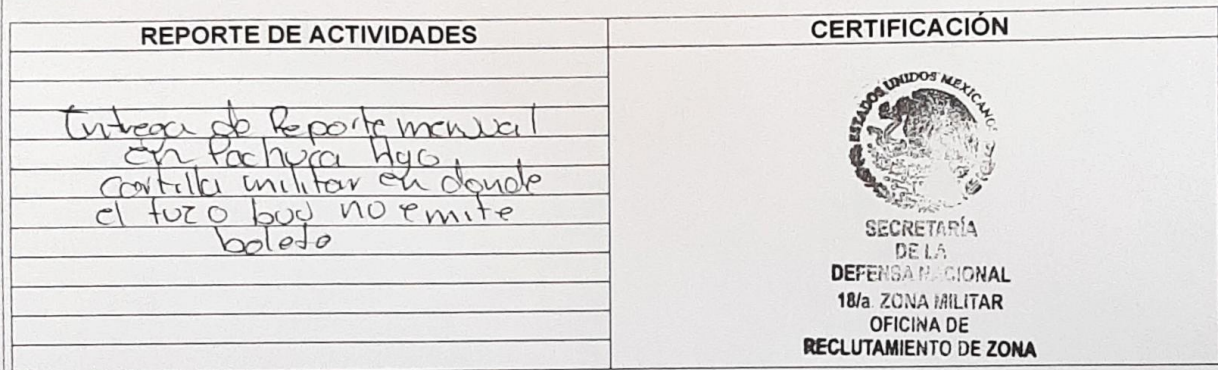 REPORTE DE ACTIVIDADES
Entrega de Reporte menual
en Pachuca Hgo,
cartilla militar en donde
el tuzo bus no emite
boleto
CERTIFICACIÓN
ESTADOS UNIDOS MEXICANOS
SECRETARÍA
DE LA
DEFENSA NACIONAL
18/a. ZONA MILITAR
OFICINA DE
RECLUTAMIENTO DE ZONA